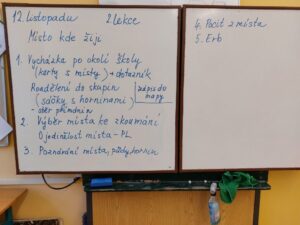 12. listopadu 2 lekce
Místo kde žiji
1. Vycházka po okolí školy
(karty s místy) + dotazník
Rozdělení do skupin
(sáčky s horninami) zápis do mapy
- sběr přírodnin
2. Výběr místa ke zkoumání
Ojedinělost místa - PL
3. Poznávání místa, půdy, hornin
4. Pocit z místa
5. Erb